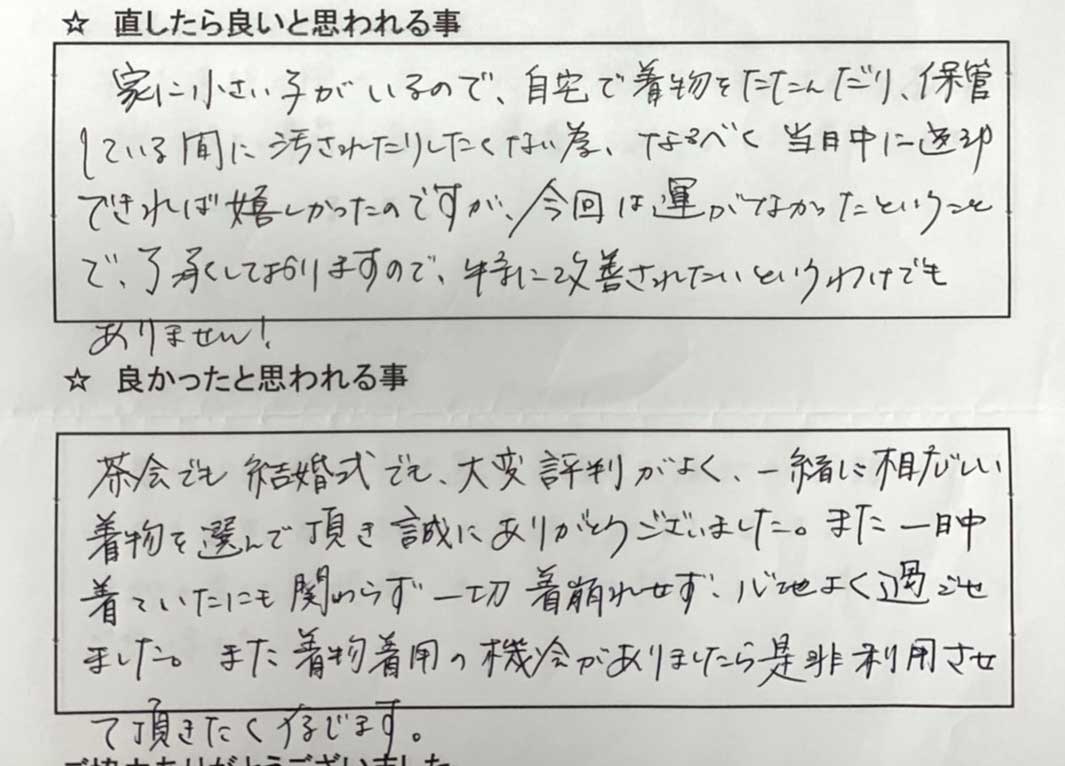 ☆ 直したら良いと思われる事
家に小さい子がいるので、自宅で着物をたたんだり、保管
している間に汚されたりしたくない為、なるべく当日中に返却
できれば嬉しかったのですが、今回は運がなかったということ
で、了承しておりますので、特に改善されたいというわけでも
ありません!
☆ 良かったと思われる事
茶会でも結婚式でも、大変評判がよく、一緒に相応しい
着物を選んで頂き誠にありがとうございました。また一日中
着ていたにも関わらず一切着崩れせず、心地よく過ごせ
ました。また着物着用の機会がありましたら是非利用させ
て頂きたく存じます。
ご協力ありがとうございました